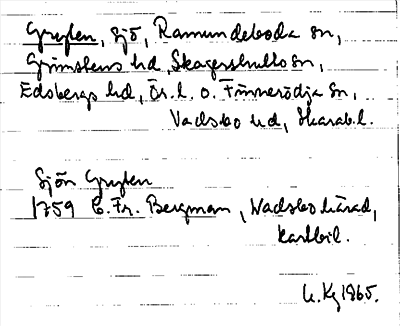 Gryten, sjö, Ramundeboda sn,
Grimstens hd, Skagershults sn,
Edsbergs hd, Ör. l. o. Finnerödja sn,
Vadsbo hd, Skarab. l.
Sjön Gryten
1759 C. Fr. Bergman, Wadsbo härad,
kartbil.
1965.